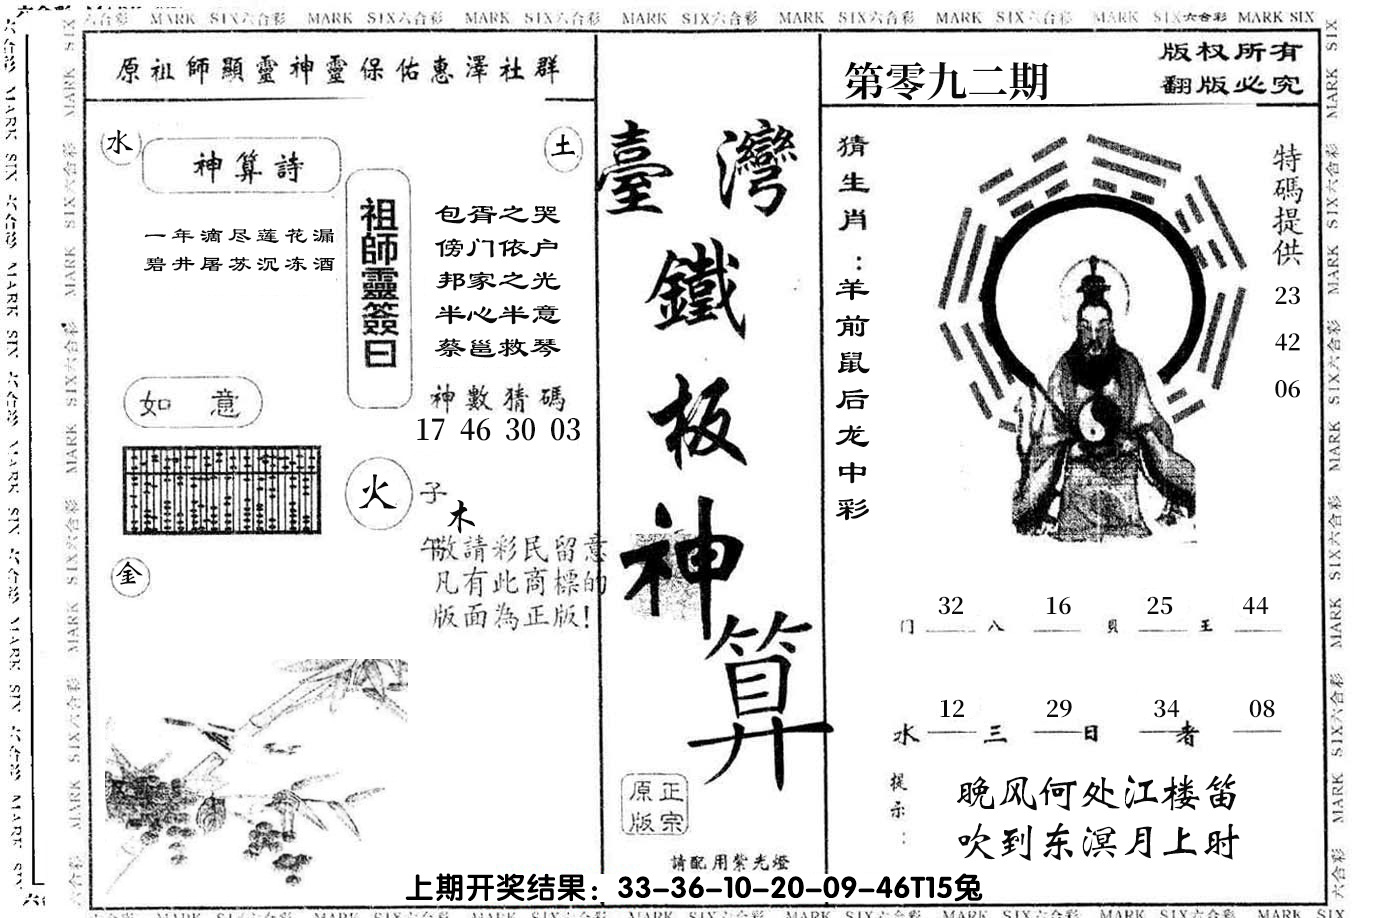 MARK SIX六合彩 MARK SIX六合彩 MARK SIX六合彩 MARK SIX六合彩 MARK SIX六合彩 MARK SIX六合彩 MARK SIX六合彩 MARK SIX
原祖師顯靈神靈保佑惠澤社群
水
神算詩
土
一年滴尽莲花漏
碧井屠苏沉冻酒
祖師靈簽曰
包胥之哭
傍门依户
邦家之光
半心半意
蔡邕救琴
神數猜碼
17 46 30 03
如意
火
子
木
午
金
敬請彩民留意
凡有此商標的
版面為正版!
臺灣
鐵
板
神
算
正宗
原版
請配用紫光燈
第零九二期
版权所有
翻版必究
猜生肖:羊前鼠后龙中彩
特碼提供
23
42
06
32 16 25 44
门 八 貝 王
12 29 34 08
水 三 日 者
提示:
晚风何处江楼笛
吹到东溟月上时
上期开奖结果：33-36-10-20-09-46T15兔